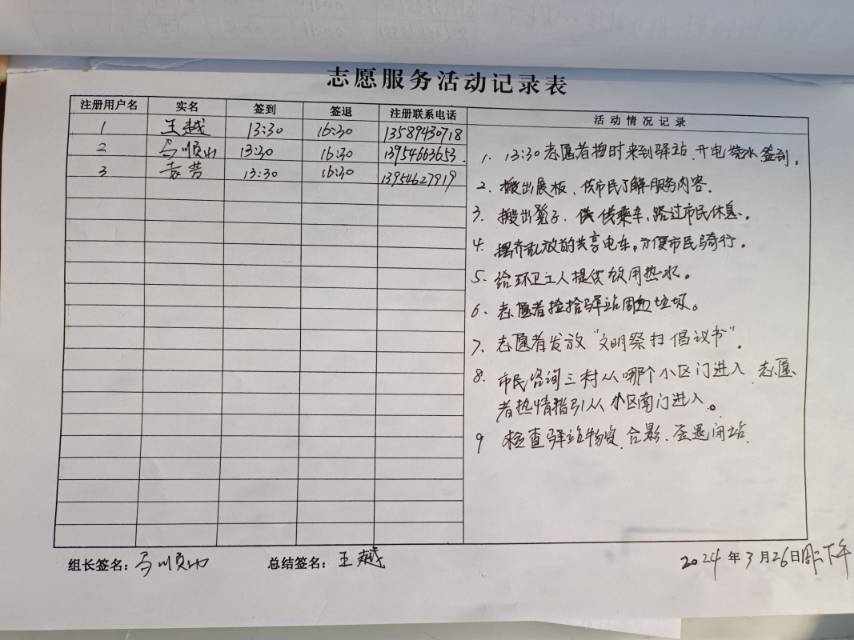 志愿服务活动记录表
注册用户名 实名 签到 签退 注册联系电话 活动情况记录
1 王越 13:30 16:30 13589430718
2 马顺山 13:30 16:30 13954663653
3 袁芳 13:30 16:30 13954627919
1. 13:30志愿者按时来到驿站，开电烧水签到。
2. 搬出展板，供市民了解服务内容。
3. 搬出凳子，供候乘车、路过市民休息。
4. 摆齐乱放的共享电车，方便市民骑行。
5. 给环卫工人提供饮用热水。
6. 志愿者捡拾驿站周边垃圾。
7. 志愿者发放“文明祭扫倡议书”。
8. 市民咨询三村从哪个小区门进入，志愿
者热情指引从小区南门进入。
9 检查驿站物资、合影、签退闭站.
组长签名：马顺山 总结签名：王越 2024年3月26日周二下午